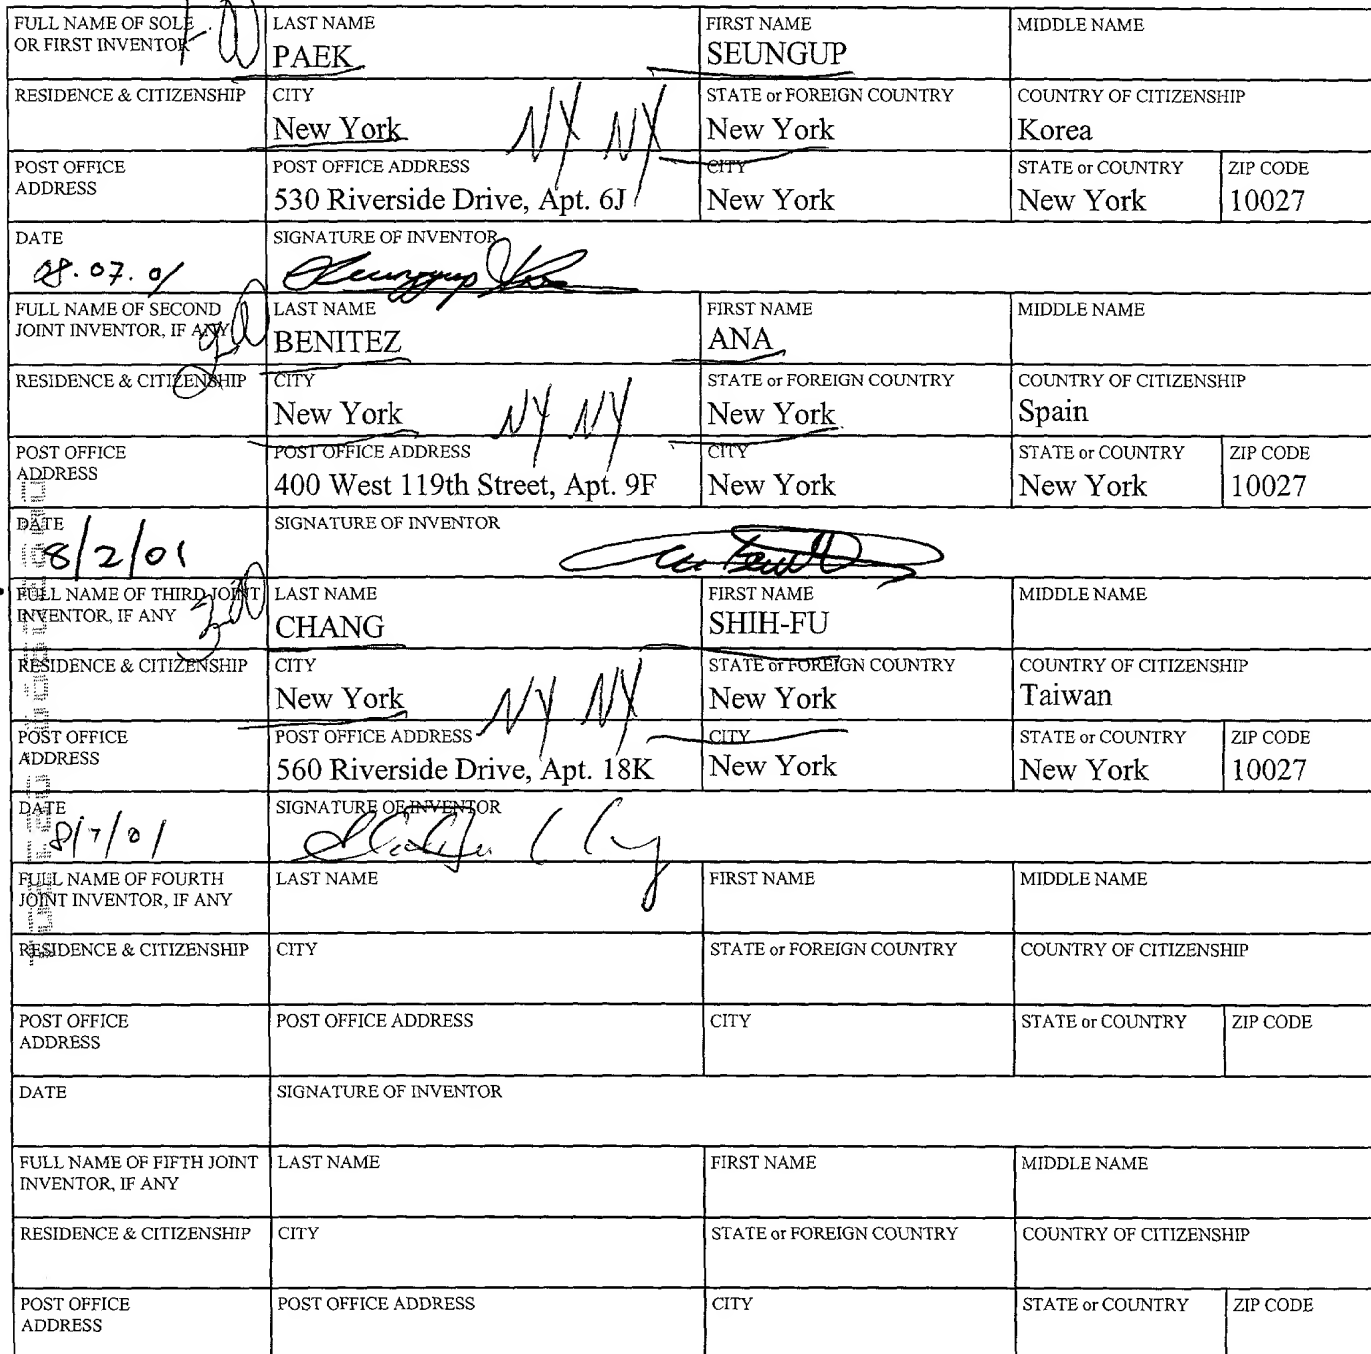 FULL NAME OF SOLE OR FIRST INVENTOR 1-00
LAST NAME PAEK
FIRST NAME SEUNGUP
MIDDLE NAME
RESIDENCE & CITIZENSHIP
CITY New York NY NY
STATE or FOREIGN COUNTRY New York
COUNTRY OF CITIZENSHIP Korea
POST OFFICE ADDRESS
POST OFFICE ADDRESS 530 Riverside Drive, Apt. 6J
CITY New York
STATE or COUNTRY New York
ZIP CODE 10027
DATE 08.07.01
SIGNATURE OF INVENTOR
FULL NAME OF SECOND JOINT INVENTOR, IF ANY 200
LAST NAME BENITEZ
FIRST NAME ANA
MIDDLE NAME
RESIDENCE & CITIZENSHIP
CITY New York NY NY
STATE or FOREIGN COUNTRY New York
COUNTRY OF CITIZENSHIP Spain
POST OFFICE ADDRESS
POST OFFICE ADDRESS 400 West 119th Street, Apt. 9F
CITY New York
STATE or COUNTRY New York
ZIP CODE 10027
DATE 8/2/01
SIGNATURE OF INVENTOR
FULL NAME OF THIRD JOINT INVENTOR, IF ANY 300
LAST NAME CHANG
FIRST NAME SHIH-FU
MIDDLE NAME
RESIDENCE & CITIZENSHIP
CITY New York NY NY
STATE or FOREIGN COUNTRY New York
COUNTRY OF CITIZENSHIP Taiwan
POST OFFICE ADDRESS
POST OFFICE ADDRESS 560 Riverside Drive, Apt. 18K
CITY New York
STATE or COUNTRY New York
ZIP CODE 10027
DATE 8/7/01
SIGNATURE OF INVENTOR
FULL NAME OF FOURTH JOINT INVENTOR, IF ANY
LAST NAME
FIRST NAME
MIDDLE NAME
RESIDENCE & CITIZENSHIP
CITY
STATE or FOREIGN COUNTRY
COUNTRY OF CITIZENSHIP
POST OFFICE ADDRESS
POST OFFICE ADDRESS
CITY
STATE or COUNTRY
ZIP CODE
DATE
SIGNATURE OF INVENTOR
FULL NAME OF FIFTH JOINT INVENTOR, IF ANY
LAST NAME
FIRST NAME
MIDDLE NAME
RESIDENCE & CITIZENSHIP
CITY
STATE or FOREIGN COUNTRY
COUNTRY OF CITIZENSHIP
POST OFFICE ADDRESS
POST OFFICE ADDRESS
CITY
STATE or COUNTRY
ZIP CODE